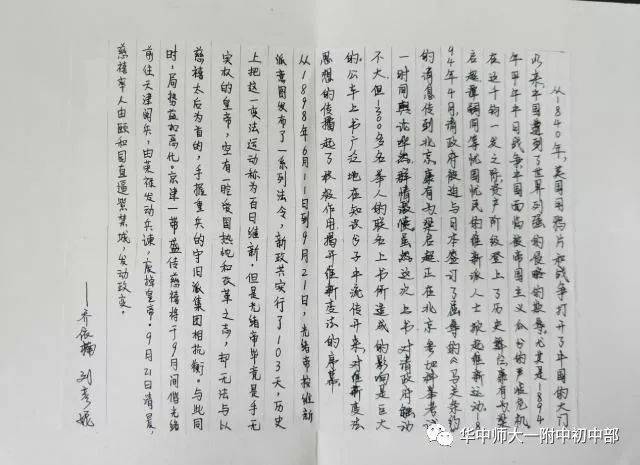 从1840年,英国用鸦片和战争打开了中国的大门
以来,中国遭到了世界列强的侵略的欺辱,尤其是1894
年甲午年中日战争中国面临被帝国主义瓜分的严峻危机
在这千钧一发之际资产阶级登上了历史舞台,康有为梁
启超谭嗣同等忧国忧民的维新派人士掀起维新运动。18
94年4月,清政府被迫与日本签订了屈辱的《马关条约》
的消息传到北京,康有为梁启超正在北京参加科举考试
一时间舆论哗然群情激愤虽然这次上书对清政府触动
不大,但1300多名举人的联名上书所造成的影响是巨大
的,公车上书广泛地在知识分子中流传开来,对维新变法
思想的传播起了积极作用揭开维新变法的序幕
从1898年6月11日到9月21日,光绪帝按维新
派意图发布了一系列法令,新政共实行了103天,历史
上把这一变法运动称为百日维新。但是光绪帝毕竟是手无
实权的皇帝,空有一腔爱国热忱和改革之志,却无法与以
慈禧太后为首的,手握重兵的守旧派集团相抗衡。与此同
时,局势益加恶化。京津一带盛传慈禧将于9月间偕光绪
前往天津阅兵,由荣禄发动兵谏,废掉皇帝。9月21日清晨,
慈禧率人由颐和园直逼紫禁城,发动政变。
华中师大一附中初中部